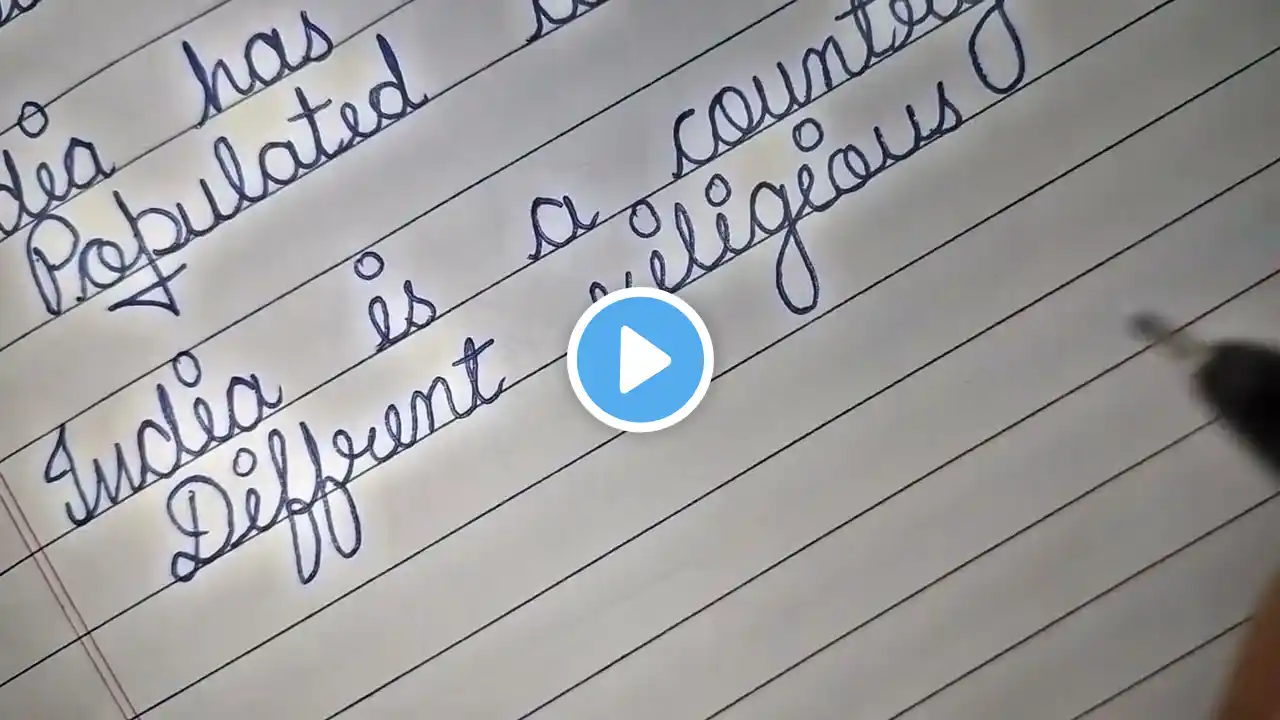 dia has
Populated
India is a country
Diffrent religious